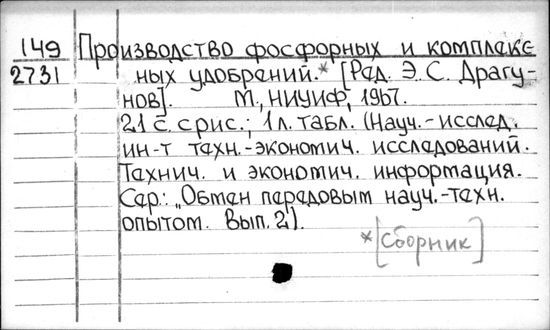 149 Производство фосфорных и комплекс
2731 ных удобрений.* [Ред. Э.С. Драгу-
нов]. М., НИУИФ, 1967.
21 с. с рис.; 1 л. табл. (Науч.-исслед.
ин-т техн.-экономич. исследований.
Технич. и экономич. информация.
Сер.: „Обмен передовым науч.-техн.
опытом. Вып. 2).
*[Сборник]